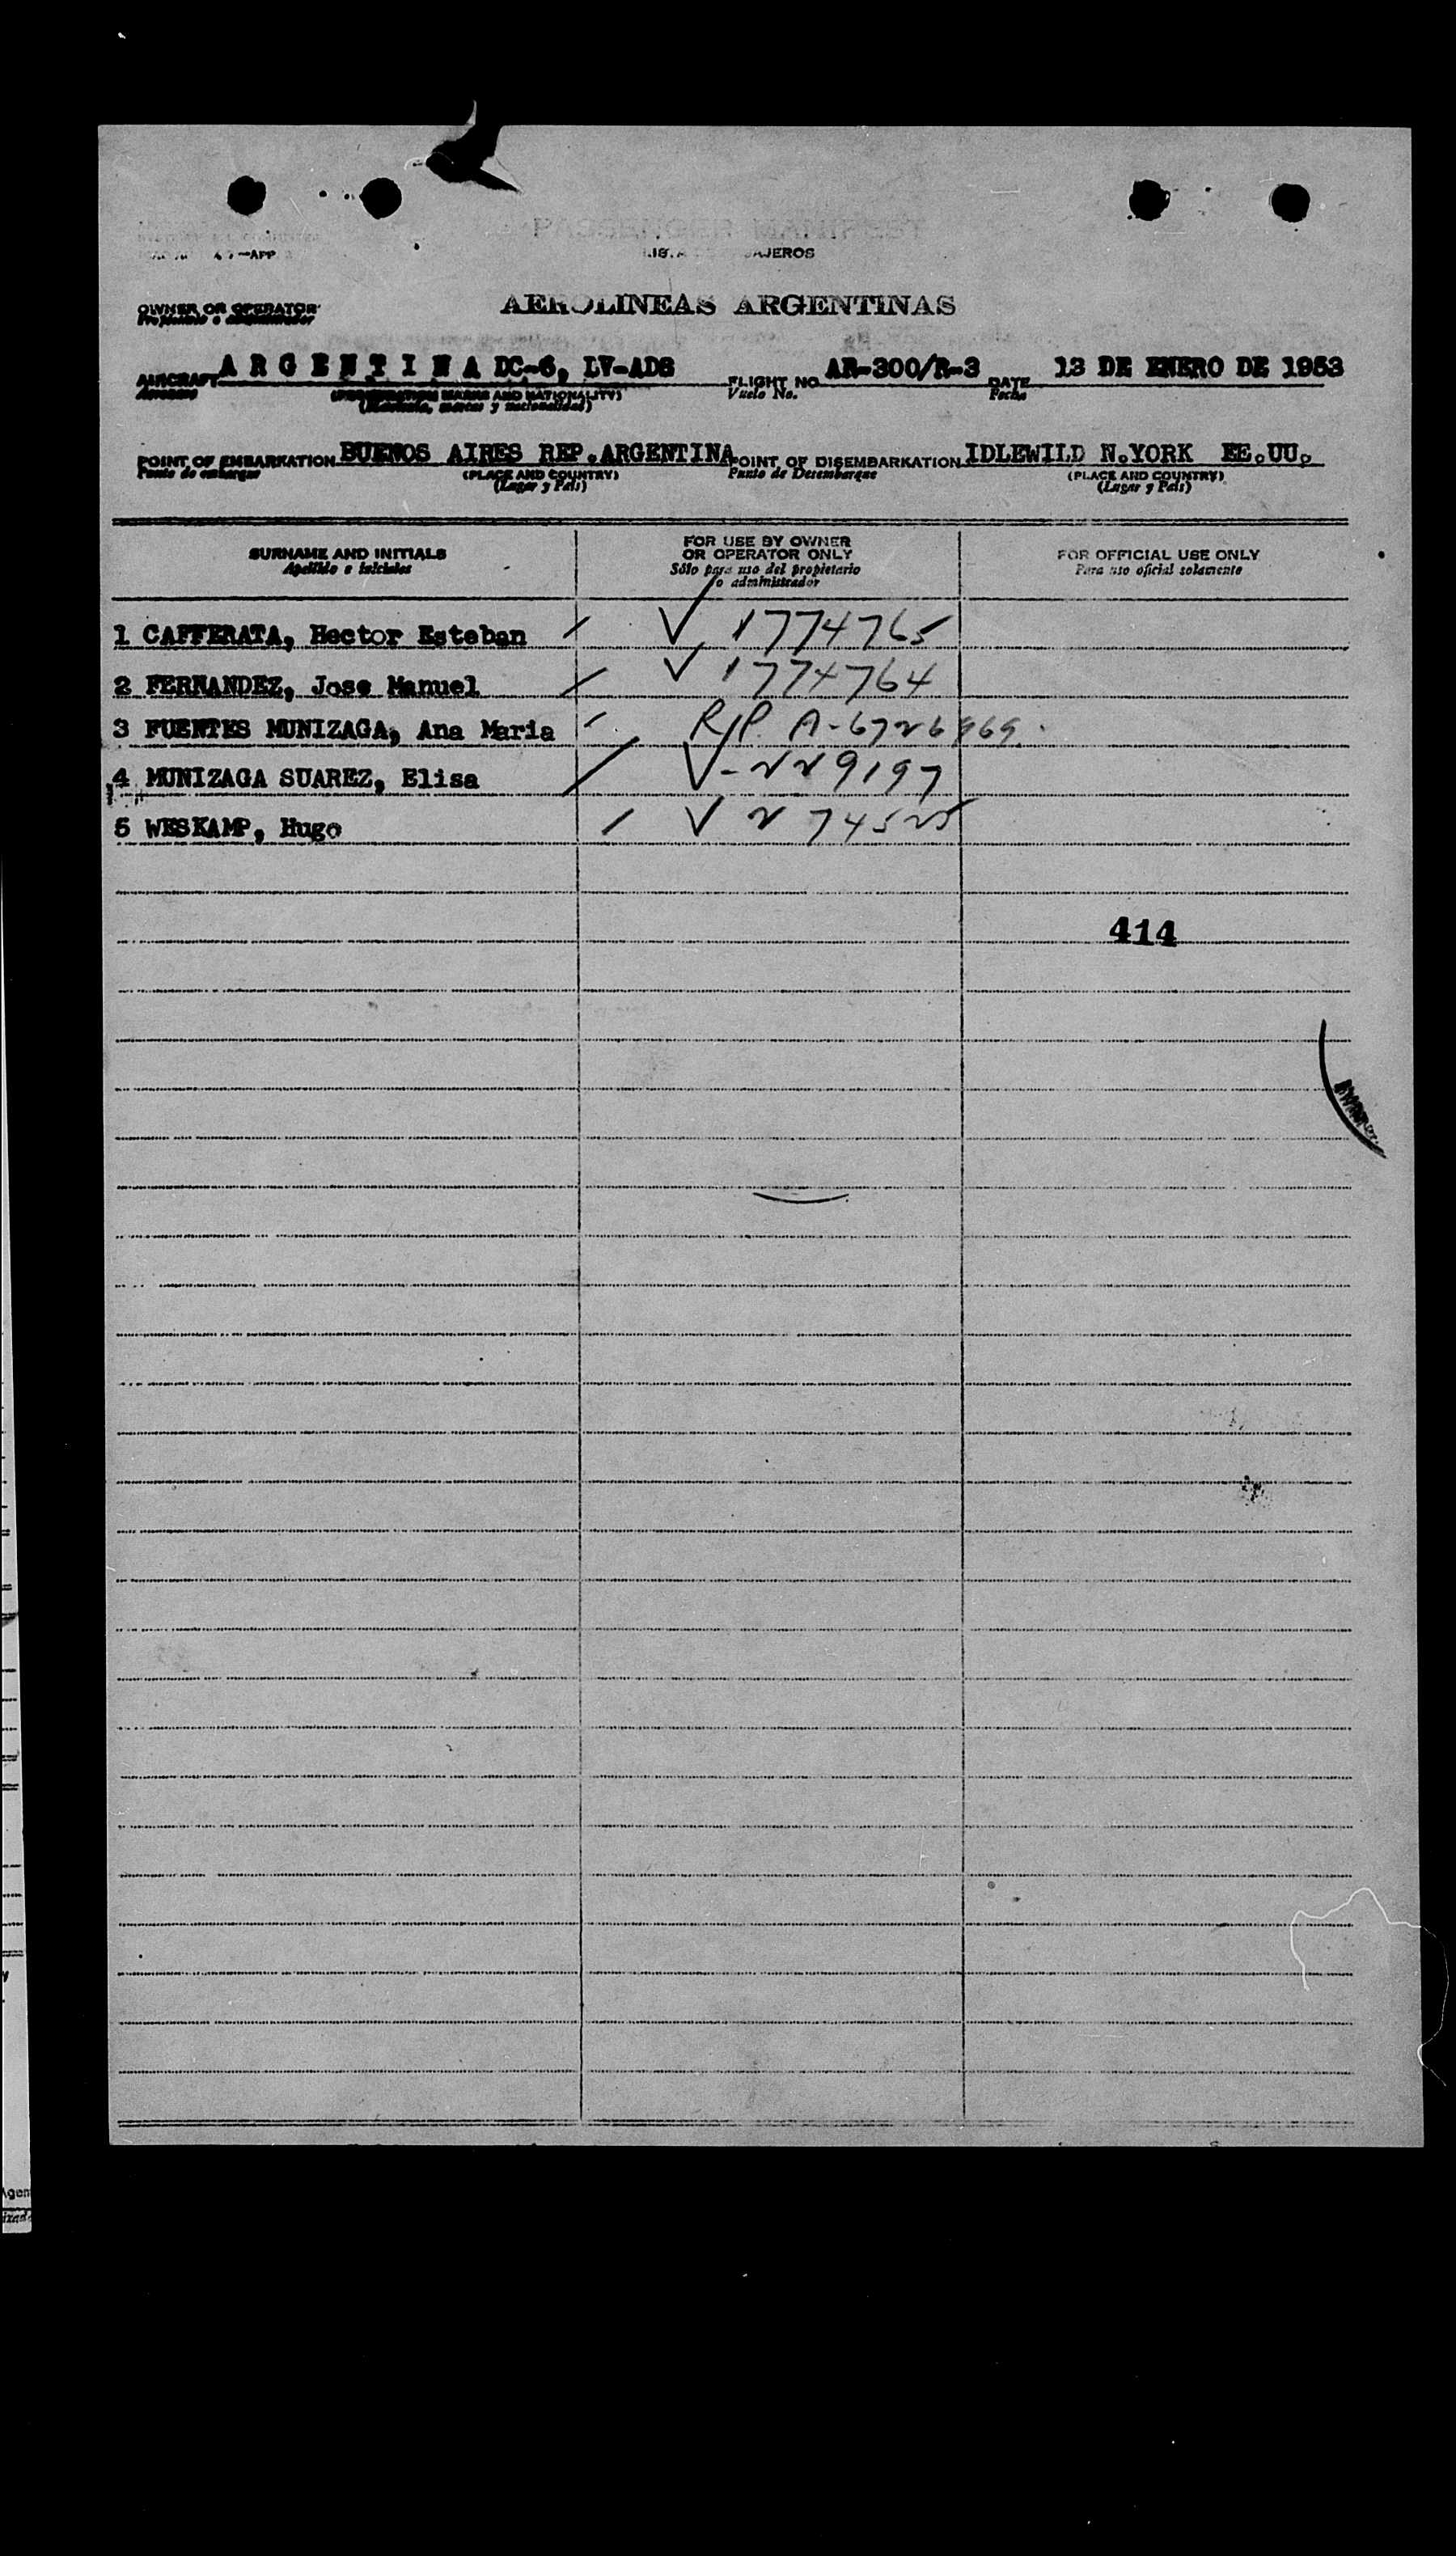 PASSENGER MANIFEST
OWNER OR OPERATOR
Propietario o administrador
AEROLINEAS ARGENTINAS
AIRCRAFT A R G E N T I N A DC-6, LV-ADS FLIGHT NO. AR-300/R-3 DATE 13 DE ENERO DE 1953
Aeronave Vuelo No. Fecha
(REGISTRATION MARKS AND NATIONALITY)
(Matrícula, marcas y nacionalidad)
POINT OF EMBARKATION BUENOS AIRES REP.ARGENTINA POINT OF DISEMBARKATION IDLEWILD N.YORK EE.UU.
Punto de embarque (PLACE AND COUNTRY) Punto de Desembarque (PLACE AND COUNTRY)
(Lugar y País) (Lugar y País)
SURNAME AND INITIALS
Apellido e iniciales
FOR USE BY OWNER
OR OPERATOR ONLY
Sólo para uso del propietario
o administrador
FOR OFFICIAL USE ONLY
Para uso oficial solamente
1 CAFFERATA, Hector Esteban / V 1774765
2 FERNANDEZ, Jose Manuel / V 1774764
3 FUENTES MUNIZAGA, Ana Maria / R/P. A-6726969.
4 MUNIZAGA SUAREZ, Elisa / V-229197
5 WESKAMP, Hugo / V 274525
414